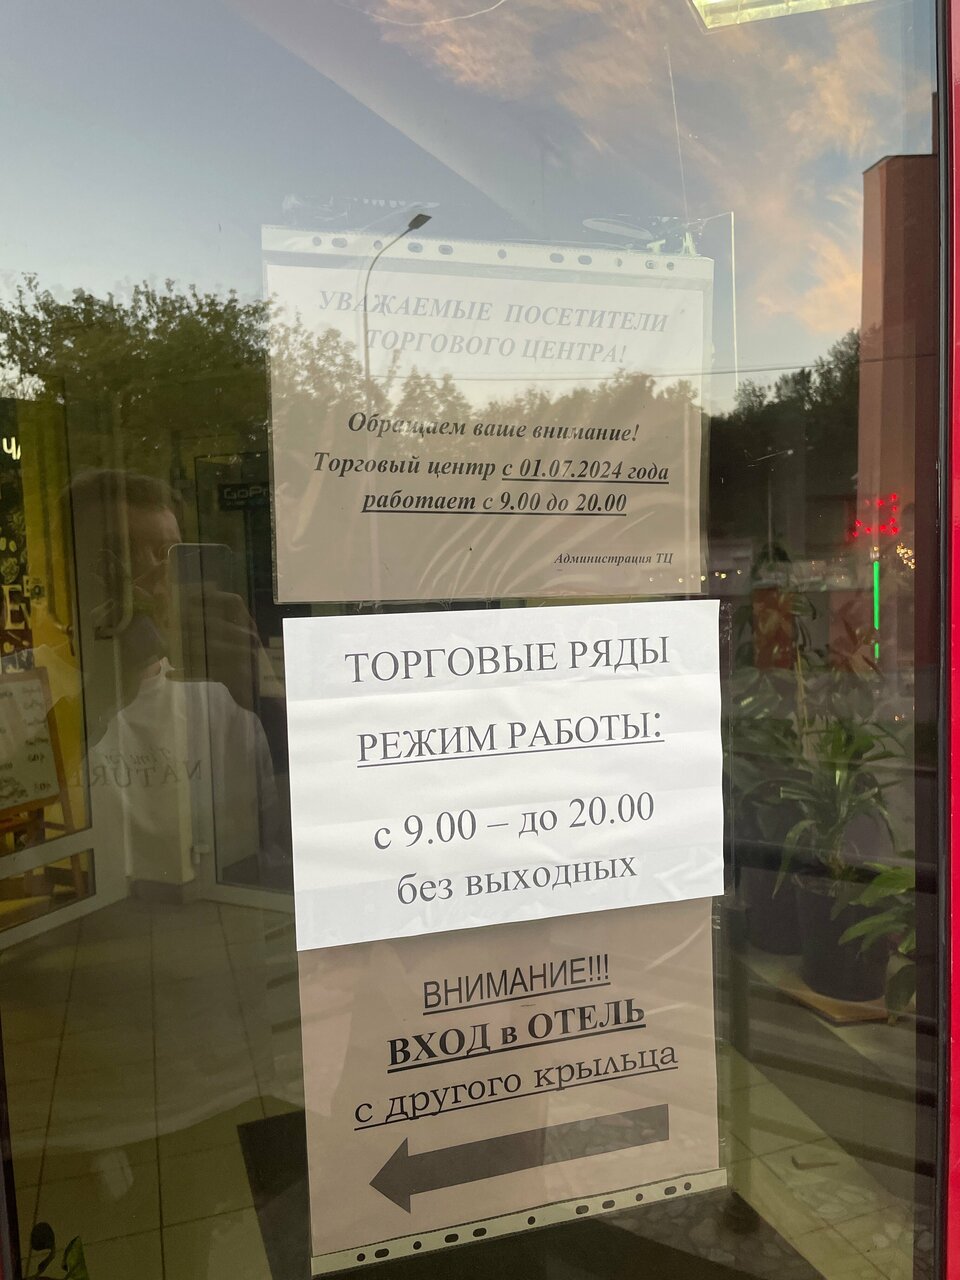 УВАЖАЕМЫЕ ПОСЕТИТЕЛИ
ТОРГОВОГО ЦЕНТРА!
Обращаем ваше внимание!
Торговый центр с 01.07.2024 года
работает с 9.00 до 20.00
Администрация ТЦ
ТОРГОВЫЕ РЯДЫ
РЕЖИМ РАБОТЫ:
с 9.00 – до 20.00
без выходных
ВНИМАНИЕ!!!
ВХОД в ОТЕЛЬ
с другого крыльца
GoPro